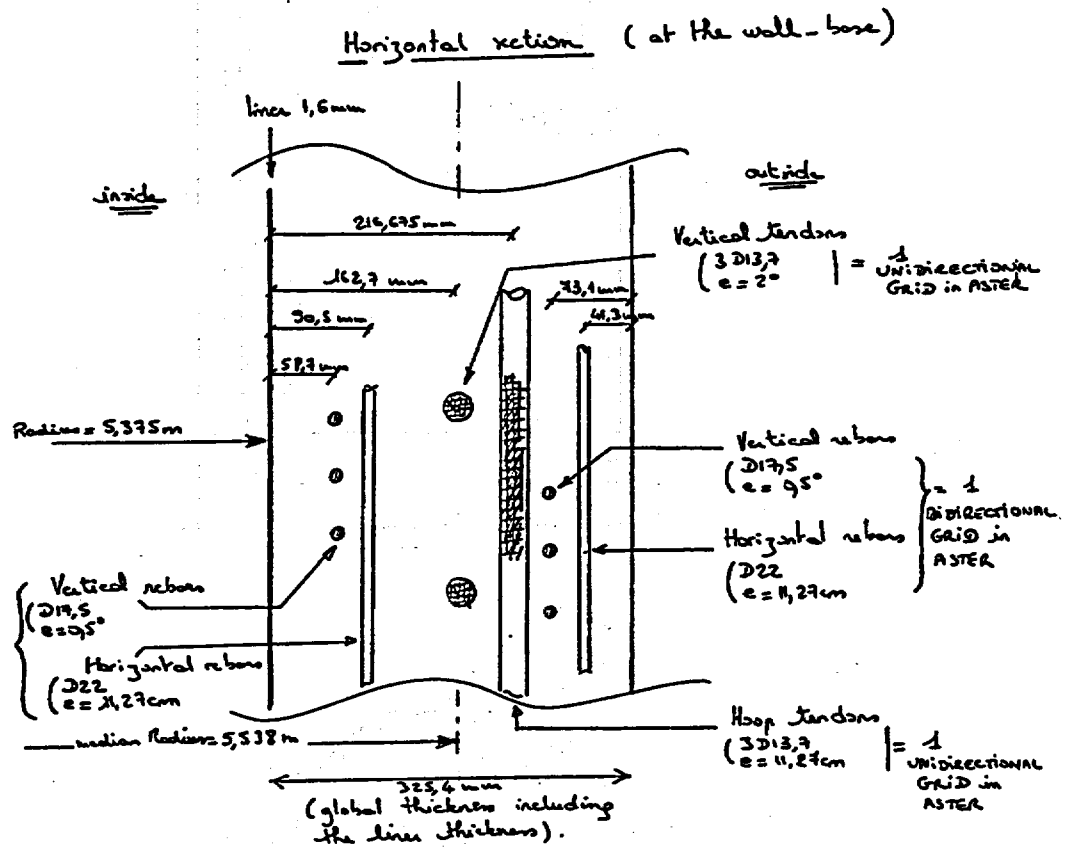 Horizontal section (at the wall-base)
liner 1,6mm
inside
outside
216,675mm
162,7 mm
90,5 mm
58,7 mm
73,1mm
41,3mm
Vertical tendons
3D13,7
e = 2°
= 1
UNIDIRECTIONAL
GRID in ASTER
Radius = 5,375m
Vertical rebars
D17,5
e = 0,5°
Horizontal rebars
D22
e = 11,27cm
= 1
BIDIRECTIONAL
GRID in
ASTER
Vertical rebars
D17,5
e=0,5°
Horizontal rebars
D22
e = 11,27cm
median Radius=5,538m
Hoop tendons
3D13,7
e = 11,27cm
= 1
UNIDIRECTIONAL
GRID in
ASTER
325,4 mm
(global thickness including
the liner thickness).